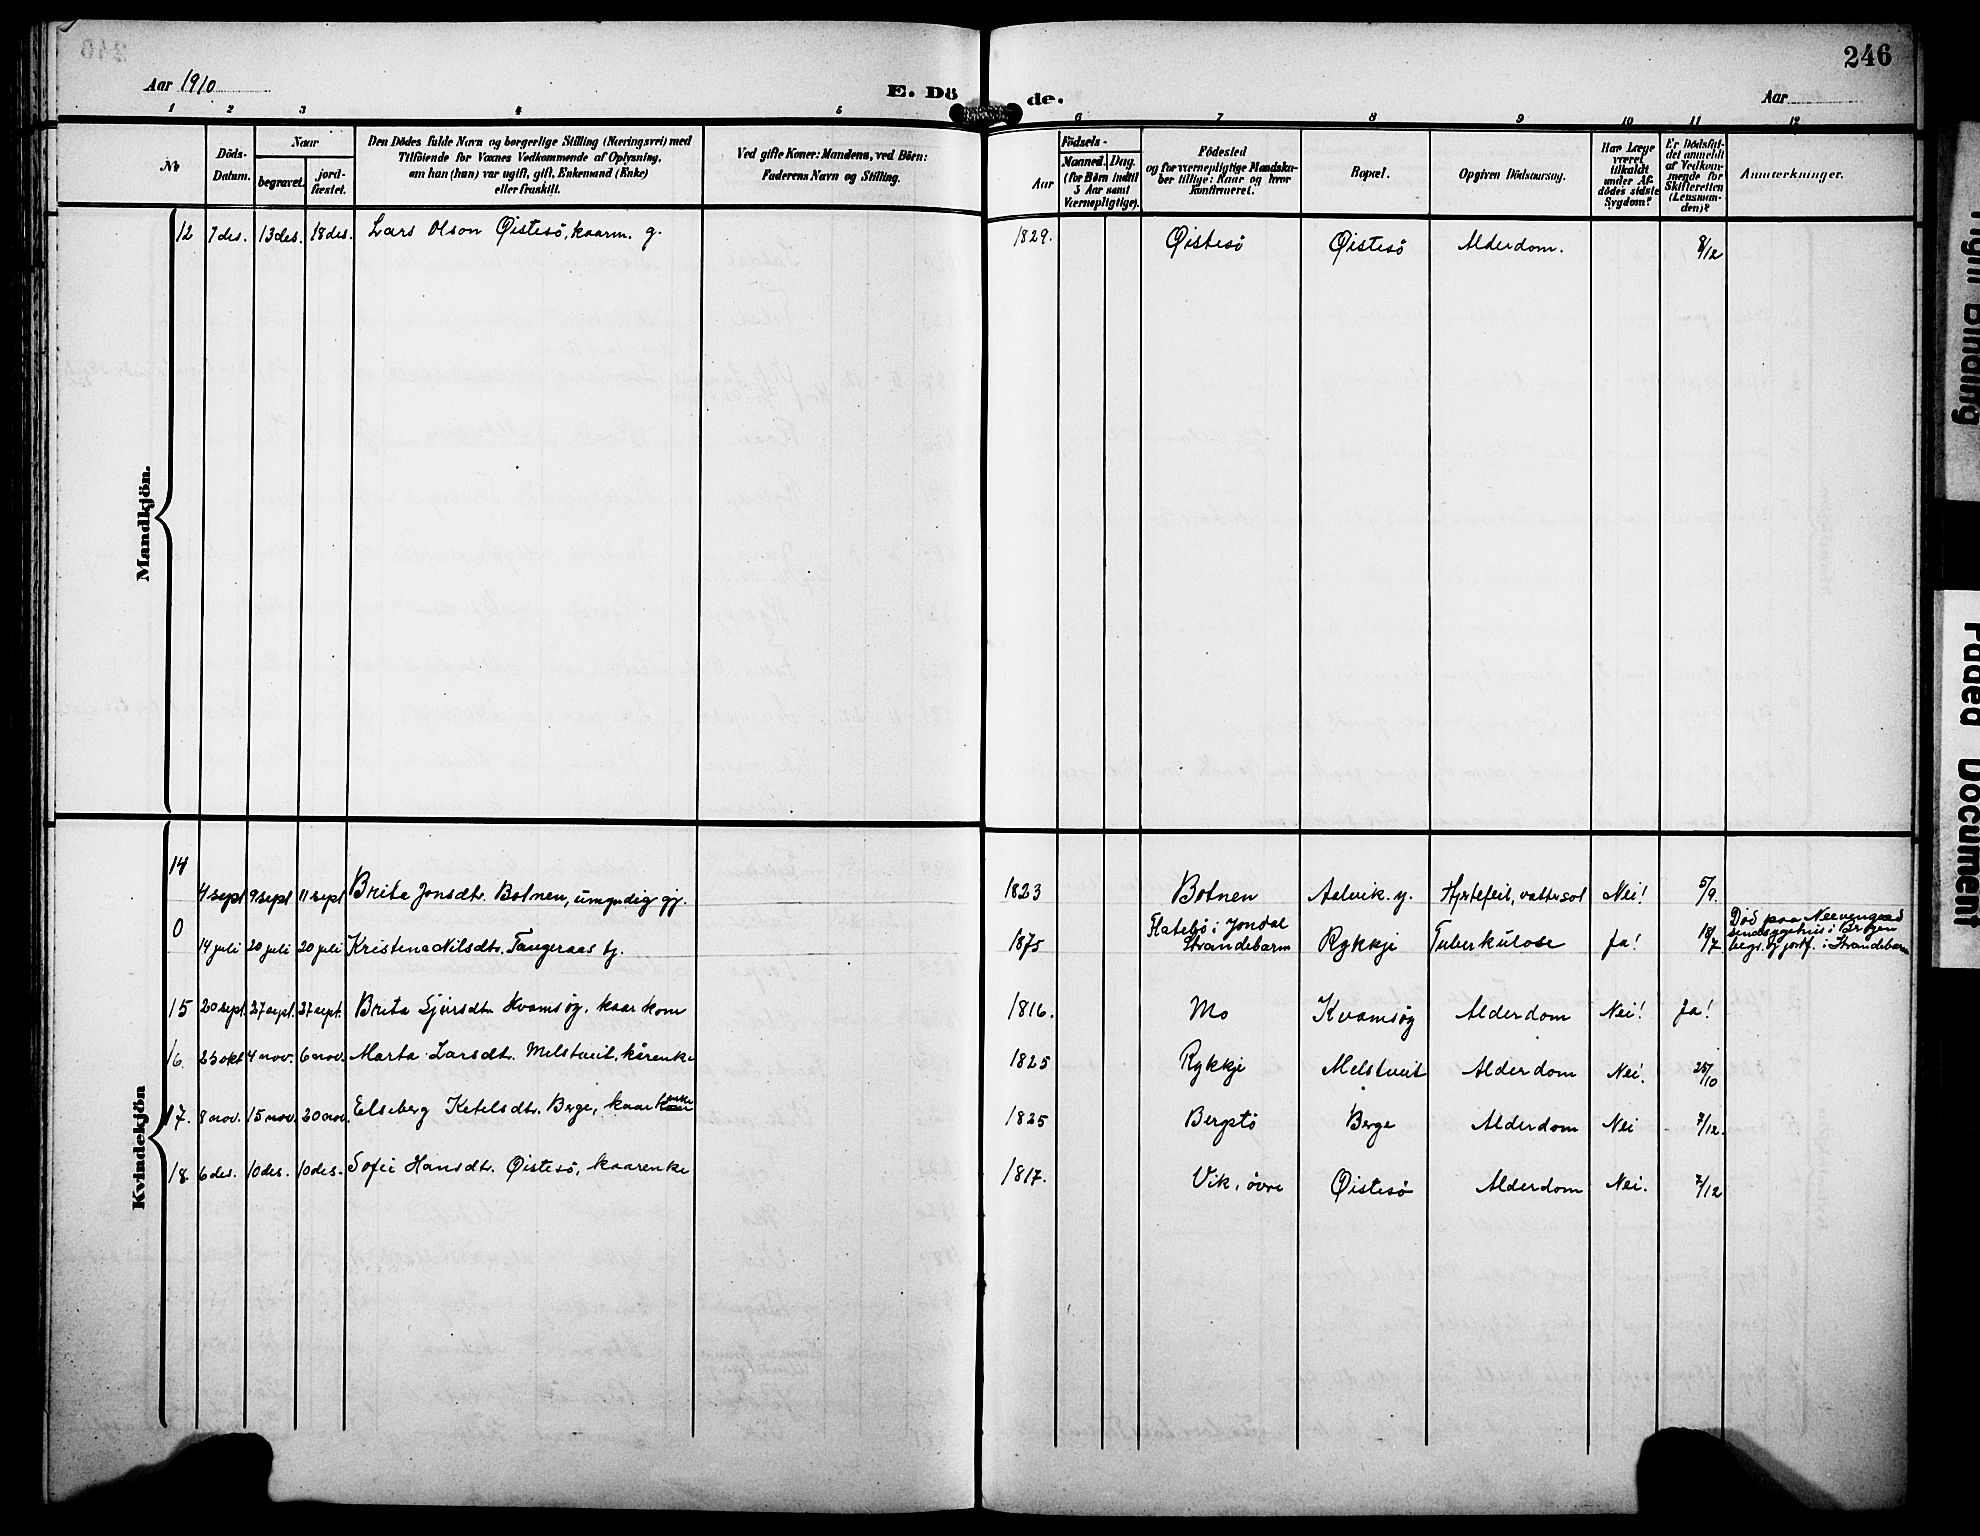 246
Aar 1910
E. Dö de.
Aar
1 2 3 4 5 6 7 8 9 10 11 12
No
Döds-Datum.
Naar
begravet.
jord-fæstet.
Den Dödes fulde Navn og borgerlige Stilling (Næringsvei) med
Tilföiende for Voxnes Vedkommende af Oplysning,
om han (hun) var ugift, gift, Enkemand (Enke)
eller fraskilt.
Ved gifte Koner: Mandens, ved Börn:
Faderens Navn og Stilling.
Födsels-
Aar
Maaned. Dag.
(for Børn indtil
5 Aar samt
Værnepligtige).
Födested
og for værnepligtige Mandska-
ber tillige: Naar og hvor
konfirmeret.
Bopæl.
Opgiven Dödsaarsag.
Har Læge
været
tilkaldt
under Af-
dödes sidste
Sygdom?
Er Dödsfal-
det anmeldt
af Vedkom-
mende for
Skifteretten
(Lensman-
den)?
Anmærkninger.
Mandkjön.
12 7 des. 13 des. 18 des. Lars Olson Øistesö, kaarm. g. 1829. Øistesö Øistesö Alderdom. 8/12
Kvindekjön
14 4 sept 9 sept 11 sept Brita Jonsdtr. Botnen, umyndig gj. 1823 Botnen Aalvik. y. Hjertefeil, vattersot Nei! 5/9.
0 14 juli 20 juli 20 juli Kristina Nilsdtr. Tangeraas tj. 1875 Flatebö i Jondal Strandebarm Rykkje Tuberkulose Ja! 18/7 Död paa Neevengaard sindsygehus i Bergen begr. og jordf. i Strandebarm
15 20 sept. 27 sept. 27 sept. Brita Sjursdtr Kvamsøg, kaarkone 1816. Mo Kvamsøg Alderdom Nei! Ja!
16. 25 okt 4 nov. 6 nov. Marta Larsdtr. Melstveit, kårenke 1825 Rykkje Melstveit Alderdom Nei. 25/10
17. 8 nov. 15 nov. 20 nov. Elseberg Ketelsdtr. Berge, kaar enke 1825 Bergstö Berge Alderdom Nei 7/12.
18. 6 des. 10 des. 10 des. Sofie Hansdtr. Øistesö, kaarenke 1817. Vik, övre Øistesö Alderdom Nei. 7/12
Tight Binding
Faded Document